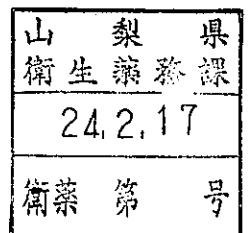 山梨県
衛生薬務課
24.2.17
衛薬 第 号